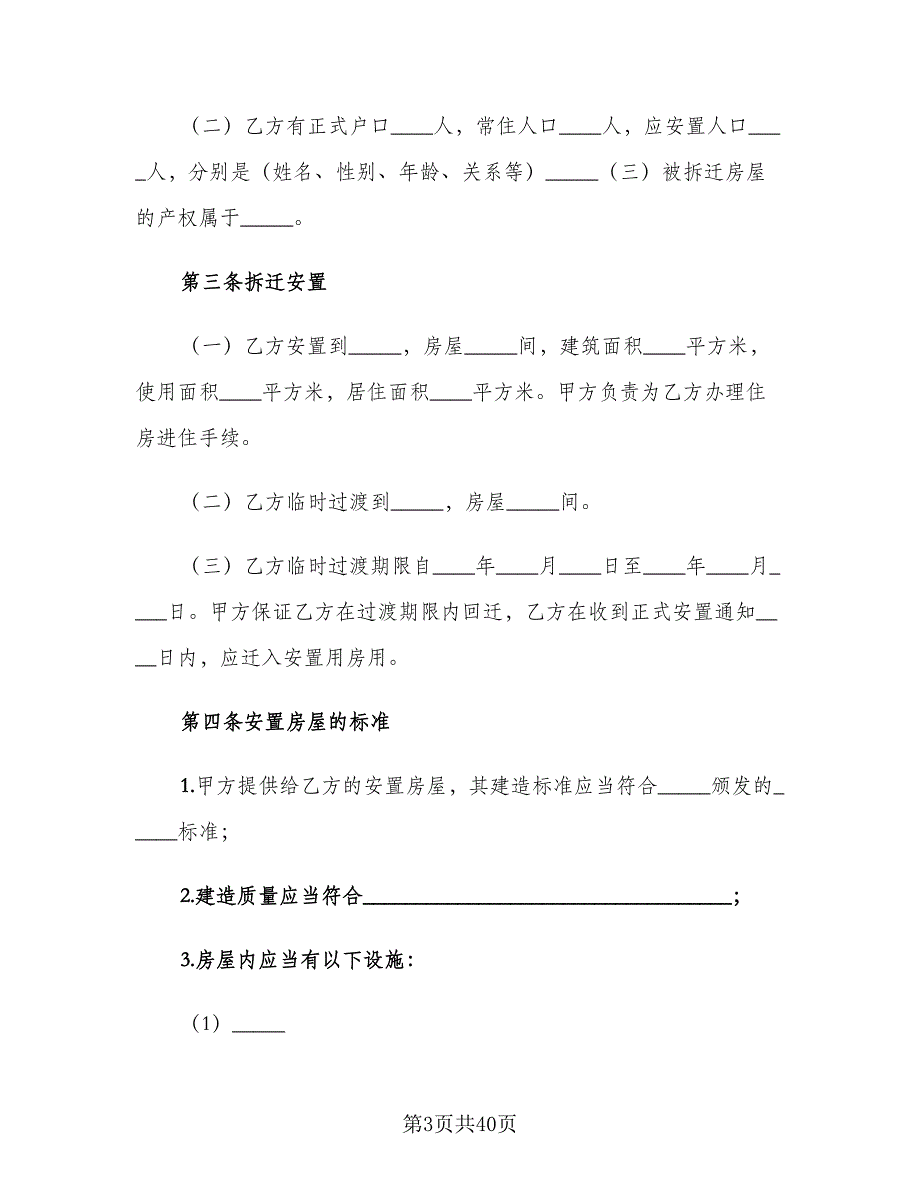 （二）乙方有正式户口____人，常住人口____人，应安置人口___
_人，分别是（姓名、性别、年龄、关系等）_____（三）被拆迁房屋
的产权属于_____。
第三条拆迁安置
（一）乙方安置到_____，房屋_____间，建筑面积____平方米，
使用面积____平方米，居住面积____平方米。甲方负责为乙方办理住
房进住手续。
（二）乙方临时过渡到_____，房屋_____间。
（三）乙方临时过渡期限自____年____月____日至____年____月_
___日。甲方保证乙方在过渡期限内回迁，乙方在收到正式安置通知__
__日内，应迁入安置用房用。
第四条安置房屋的标准
1.甲方提供给乙方的安置房屋，其建造标准应当符合_____颁发的_
____标准；
2.建造质量应当符合___________________________________；
3.房屋内应当有以下设施：
（1）_____
第3页共40页